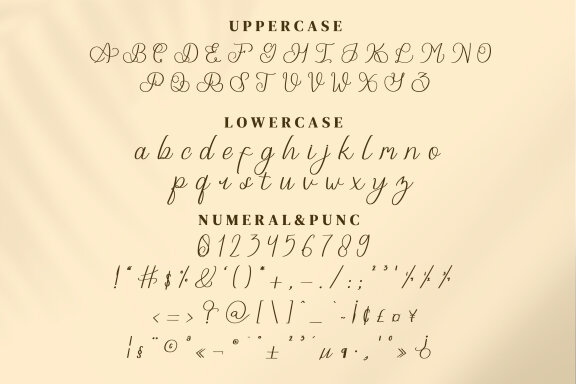 UPPERCASE
A B C D E F G H I J K L M N O
P Q R S T U V W X Y Z
LOWERCASE
a b c d e f g h i j k l m n o
p q r s t u v w x y z
NUMERAL&PUNC
0 1 2 3 4 5 6 7 8 9
! " # $ % & ' ( ) * + , - . / : ; ² ³ ¹
< = > ? @ [ \ ] ^ _ ` ~ ¡ ¢ £ ¤ ¥
¦ § ¨ © ª « ¬ ® ¯ ° ± ² ³ ´ µ ¶ · ¸ ¹ º » ¿